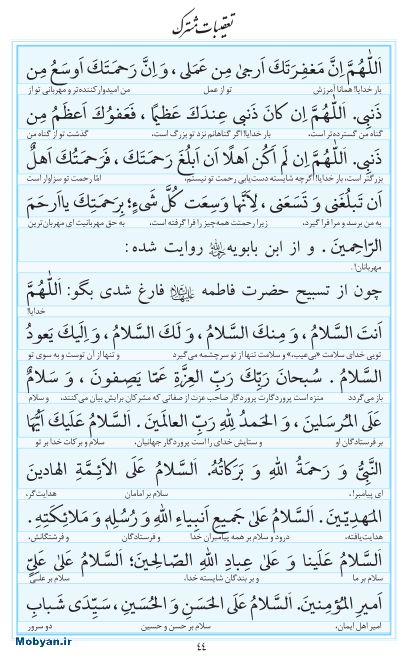 تعقیبات مشترک
اَللّٰهُمَّ اِنَّ مَغفِرَتَكَ اَرجىٰ مِن عَمَلى ، وَ اِنَّ رَحمَتَكَ اَوسَعُ مِن
بار خدایا! همانا آمرزش تو از عمل من امیدوار کننده‌تر و مهربانی تو از
ذَنبى. اَللّٰهُمَّ اِن كانَ ذَنبى عِندَكَ عَظيمًا ، فَعَفوُكَ اَعظَمُ مِن
گناه من گسترده‌تر است، بار خدایا! اگر گناهانم نزد تو بزرگ است، گذشت تو از گناه من
ذَنبى. اَللّٰهُمَّ اِن لَم اَكُن اَهلًا اَن اَبلُغَ رَحمَتَكَ ، فَرَحمَتُكَ اَهلٌ
بزرگتر است، بار خدایا! اگرچه شایسته دست‌یابی رحمت تو نیستم، امّا رحمت تو سزاوار است
اَن تَبلُغَنى وَ تَسَعَنى ، لِاَنَّها وَسِعَت كُلَّ شَىءٍ؛ بِرَحمَتِكَ يا اَرحَمَ
به من برسد و مرا فرا گیرد، زیرا رحمتت همه چیز را فرا گرفته است، به حق مهربانیت ای مهربان‌ترین
الرّاحِمينَ . و از ابن بابویه روایت شده :
مهربانان!.
چون از تسبیح حضرت فاطمه فارغ شدی بگو: اَللّٰهُمَّ
خدایا!
اَنتَ السَّلامُ ، وَ مِنكَ السَّلامُ ، وَ لَكَ السَّلامُ ، وَ اِلَيكَ يَعودُ
تویی خدای سلامت «بی‌عیب»، و سلامت تنها از تو سرچشمه می‌گیرد و تنها از آن توست و به سوی تو
السَّلامُ . سُبحانَ رَبِّكَ رَبِّ العِزَّةِ عَمّا يَصِفونَ ، وَ سَلامٌ
باز می‌گردد منزه است پروردگارت پروردگار صاحب عزت از صفاتی که مشرکان برایش بیان می‌کنند، و سلام
عَلَى المُرسَلينَ ، وَ الحَمدُ لِلّٰهِ رَبِّ العالَمينَ . اَلسَّلامُ عَلَيكَ اَيُّهَا
بر فرستادگان او و ستایش خدای را است پروردگار جهانیان، سلام و برکات خدا بر تو
النَّبِىُّ وَ رَحمَةُ اللهِ وَ بَرَكاتُهُ. اَلسَّلامُ عَلَى الاَئِمَّةِ الهادينَ
ای پیامبر!، سلام بر امامان هدایت‌گر،
المَهدِيّينَ . اَلسَّلامُ عَلىٰ جَميعِ اَنبِياءِ اللهِ وَ رُسُلِهِ وَ مَلائِكَتِهِ.
هدایت‌یافته، درود و سلام بر همه پیامبران خدا و فرستادگان و فرشتگانش،
اَلسَّلامُ عَلَينا وَ عَلىٰ عِبادِ اللهِ الصّالِحينَ؛ اَلسَّلامُ عَلىٰ عَلِىٍّ
سلام بر ما و بر بندگان شایسته خدا، سلام بر علی
اَميرِ المُؤمِنينَ. اَلسَّلامُ عَلَى الحَسَنِ وَ الحُسَينِ ، سَيِّدَى شَبابِ
امیر اهل ایمان، سلام بر حسن و حسین دو سرور
٤٤
Mobyan.ir